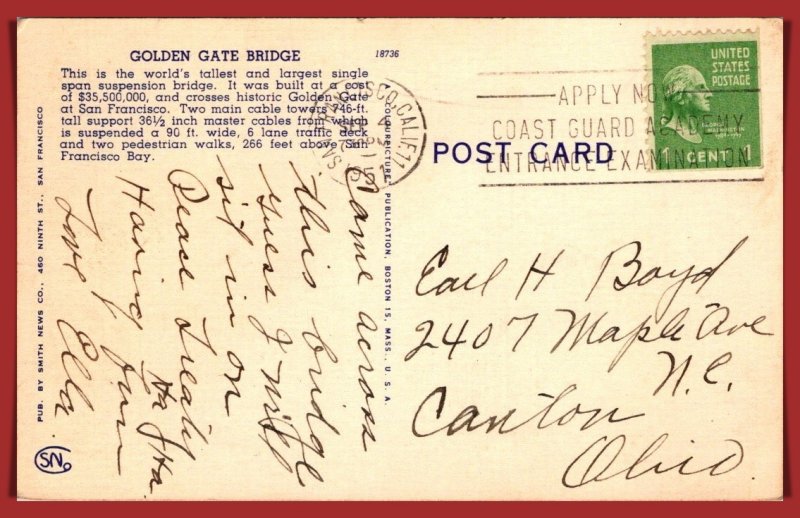 GOLDEN GATE BRIDGE
18736
This is the world's tallest and largest single
span suspension bridge. It was built at a cost
of $35,500,000, and crosses historic Golden Gate
at San Francisco. Two main cable towers 746-ft.
tall support 36½ inch master cables from which
is suspended a 90 ft. wide, 6 lane traffic deck
and two pedestrian walks, 266 feet above San
Francisco Bay.
PUB. BY SMITH NEWS CO., 460 NINTH ST., SAN FRANCISCO
SN
COLOURPICTURE PUBLICATION, BOSTON 15, MASS. U. S. A.
Came across
this bridge
guess I might
sit in on
Peace Treaty
Ha Ha
Having fun
Love Ella
SAN FRANCISCO, CALIF. 11
APPLY NOW
COAST GUARD ACADEMY
ENTRANCE EXAMINATION
UNITED
STATES
POSTAGE
1 CENT 1
POST CARD
Earl H Boyd
2407 Maple Ave
N.E.
Canton
Ohio.